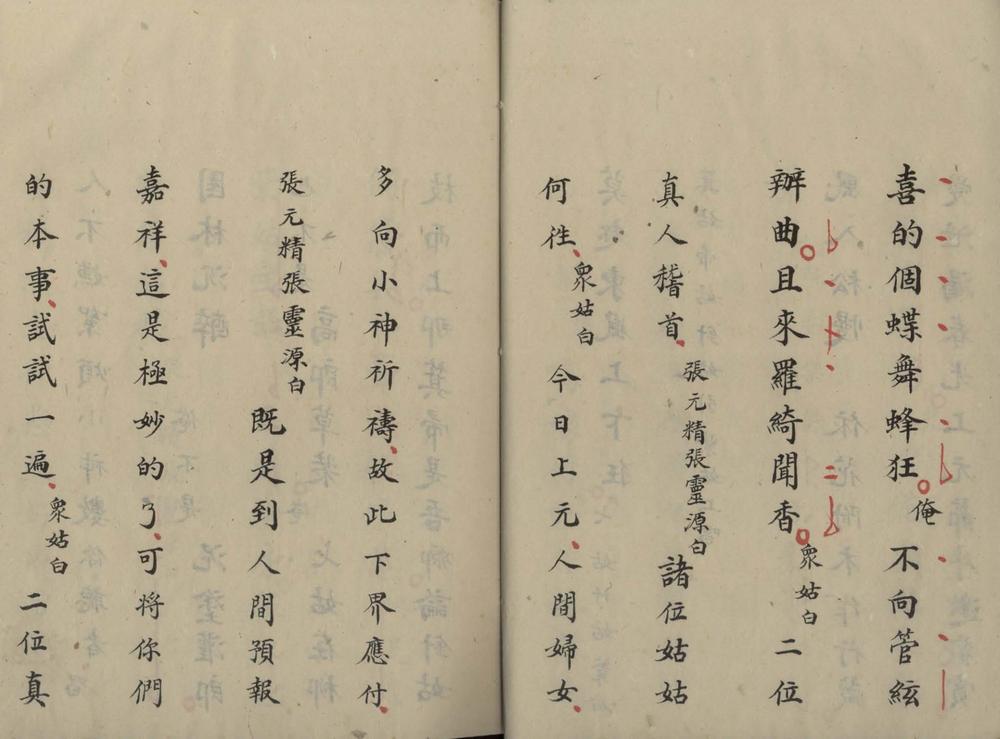 喜的個蝶舞蜂狂。俺不向管絃
辦曲。且來羅綺聞香。衆姑白二位
真人稽首、張元精張靈源白諸位姑姑
何徃、衆姑白今日上元、人間婦女、
多向小神祈禱、故此下界應付、
張元精張靈源白既是到人間預報
嘉祥、這是極妙的了、可將你們
的本事、試試一遍、衆姑白二位真